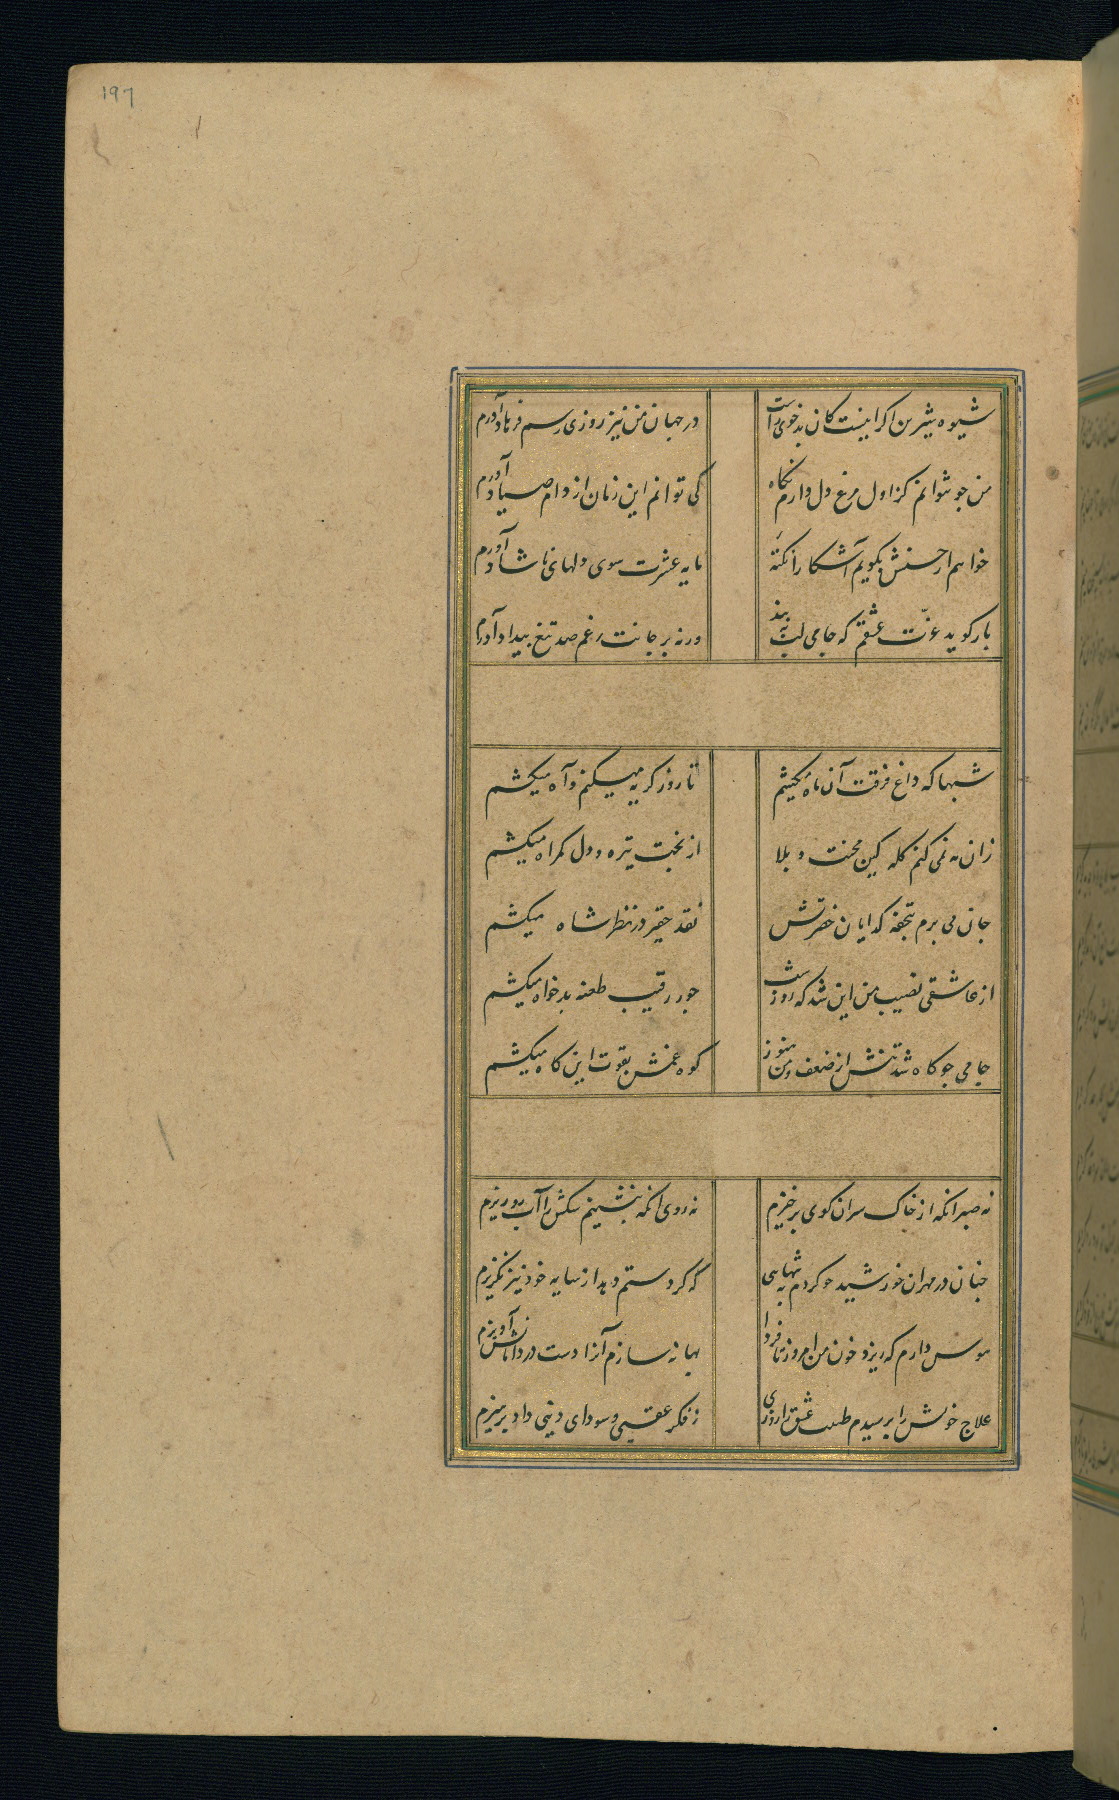 197
شیوه شیرین اکر اینست کان بدخوی راست در جهان من نیز روزی رسم فرهاد آورم
من جو نتوانم کز اول مرغ دل دارم نکاه کی توانم این زمان از دام صیاد آورم
خواهم از حسنش بکویم آشکارا نکتهٔ مایه عشرت سوی دلهای ناشاد آورم
باز کوید عزّت عشقم که جامی لب ببند ورنه بر جانت زغم صد تیغ بیداد آورم
شبها که داغ فرقت آن ماه میکشم تا روز کریه میکنم و آه میکشم
زان مه نمی کنم کله کین محنت و بلا از بخت تیره و دل کمراه میکشم
جان می برم بتحفه کدایان حضرتش نقد حقیر در نظر شاه میکشم
از عاشقی نصیب من این شد که روز و شب جور رقیب طعنه بدخواه میکشم
جامی جو کاه شد تنش از ضعف و من هنوز کوه غمش بقوت این کاه میکشم
نه صبر انکه از خاک سر ان کوی برخیزم نه روی انکه بنشینم سکش را آب رو ریزم
جنان در مهر ان خورشید خو کردم به تنهایی که کر دستم دهد از سایه خود نیز بکریزم
هوس دارم که ریزد خون من امروز تا فردا بهانه سازم آنرا دست در دامانش آویزم
علاج خویش را برسیدم طبیب عشق را روزی ز فکر عقبی و سودای دینی داد برهیزم